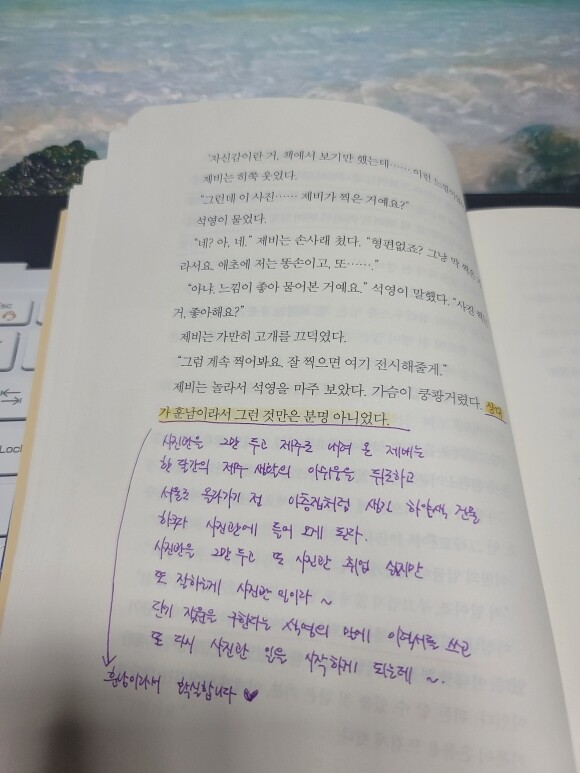 "자신감이란 거, 책에서 보기만 했는데…… 이런 느낌이
제비는 히쭉 웃었다.
"그런데 이 사진…… 제비가 찍은 거예요?"
석영이 물었다.
"네? 아, 네." 제비는 손사래 쳤다. "형편없죠? 그냥 막 찍은
라서요. 애초에 저는 똥손이고, 또……."
"아냐. 느낌이 좋아 물어본 거예요." 석영이 말했다. "사진
거, 좋아해요?"
제비는 가만히 고개를 끄덕였다.
"그럼 계속 찍어봐요. 잘 찍으면 여기 전시해줄게."
제비는 놀라서 석영을 마주 보았다. 가슴이 쿵쾅거렸다. 상대
가 훈남이라서 그런 것만은 분명 아니었다.
사진관을 그만 두고 제주로 내려 온 제비는
한 달간의 제주 생활의 아쉬움을 뒤로하고
서울로 올라가기 전 이층집처럼 생긴 하얀색 건물
하쿠다 사진관에 들어 오게 된다.
사진관을 그만두고 또 사진관 취업 싫지만
또 잘하는게 사진관 일이라 ~
단기 직원을 구한다는 석영의 말에 이력서를 쓰고
또 다시 사진관 일을 시작하게 되는데 ~.
훈남이라서 확실합니다 ♥